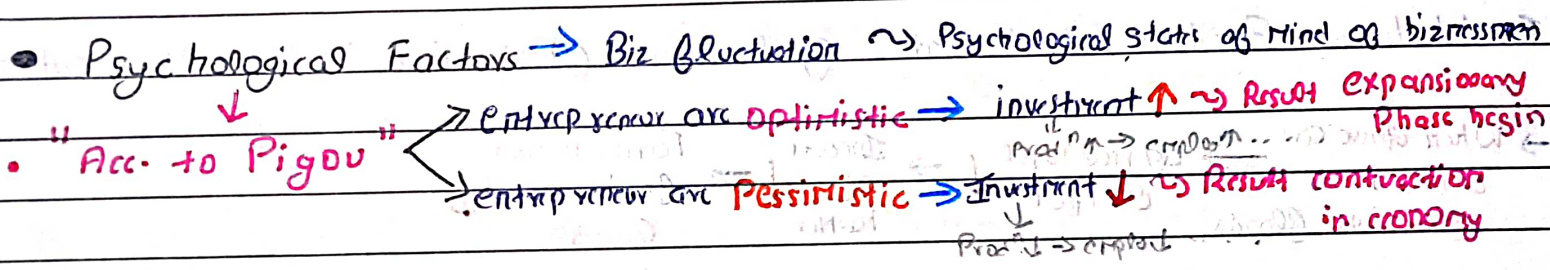 • Psychological Factors → Biz fluctuation ~> Psychological state of Mind of biznessmen
↓
• "Acc. to Pigou"
entrepreneur are optimistic → investment ↑ ~> Result expansionary Phase begin
↓ Prodⁿ↑ → emplo↑...
entrepreneur are Pessimistic → Investment ↓ ~> Result contraction in economy
↓
Prodⁿ↓ → emplo↓